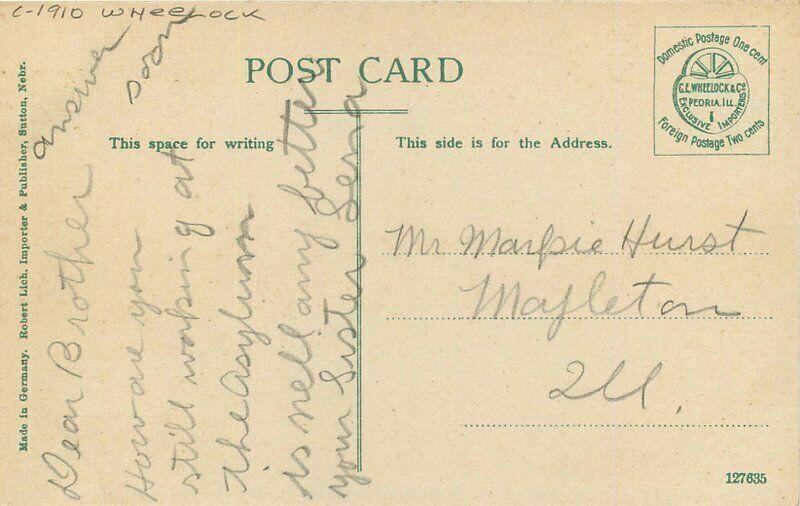 C-1910 WHEELOCK
POST CARD
This space for writing
This side is for the Address.
Domestic Postage One cent
C.E. WHEELOCK & CO
PEORIA. ILL.
EXCLUSIVE IMPORTERS
Foreign Postage Two cents
Made in Germany. Robert Lich, Importer & Publisher, Sutton, Nebr.
Dear Brother
How are you
still working at
the asylum
is nell any better
your Sister Lena
answer
soon
Mr Hurst
Mapleton
Ill.
127635